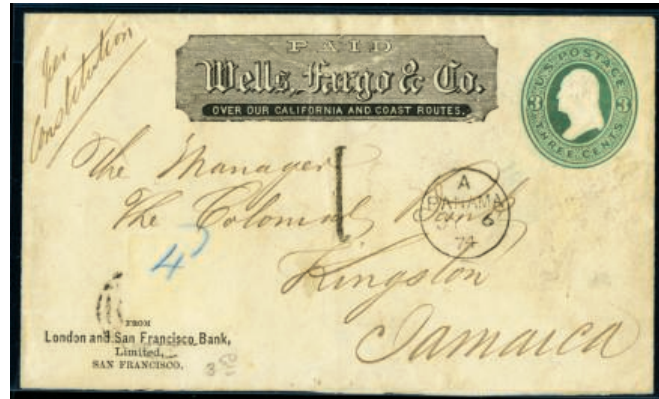 per
Constitution
PAID
Wells, Fargo & Co.
OVER OUR CALIFORNIA AND COAST ROUTES.
U.S. POSTAGE
3 3
THREE CENTS
The Manager
The Colonial Bank
Kingston
Jamaica
A
PANAMA
6
74
1
4
FROM
London and San Francisco Bank,
Limited,
SAN FRANCISCO.